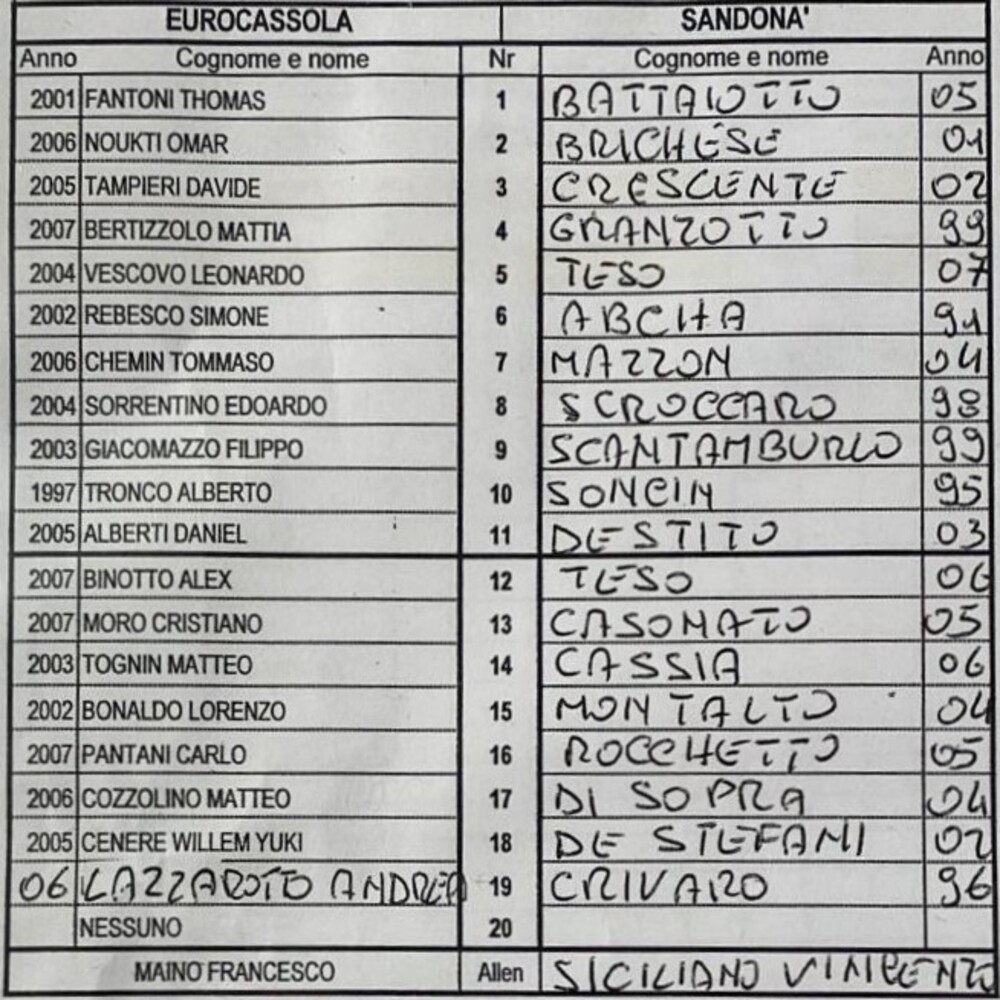 EUROCASSOLA SANDONA'
Anno Cognome e nome Nr Cognome e nome Anno
2001 FANTONI THOMAS 1 BATTAIOTTO 05
2006 NOUKTI OMAR 2 BRICHESE 01
2005 TAMPIERI DAVIDE 3 CRESCENTE 02
2007 BERTIZZOLO MATTIA 4 GRANZOTTO 99
2004 VESCOVO LEONARDO 5 TESO 07
2002 REBESCO SIMONE 6 ABCHA 91
2006 CHEMIN TOMMASO 7 MAZZON 04
2004 SORRENTINO EDOARDO 8 SCROCCARO 98
2003 GIACOMAZZO FILIPPO 9 SCANTAMBURLO 99
1997 TRONCO ALBERTO 10 SONCIN 95
2005 ALBERTI DANIEL 11 DESTITO 03
2007 BINOTTO ALEX 12 TESO 06
2007 MORO CRISTIANO 13 CASONATO 05
2003 TOGNIN MATTEO 14 CASSIA 06
2002 BONALDO LORENZO 15 MONTALTO 04
2007 PANTANI CARLO 16 ROCCHETTO 05
2006 COZZOLINO MATTEO 17 DI SOPRA 04
2005 CENERE WILLEM YUKI 18 DE STEFANI 02
06 LAZZAROTTO ANDREA 19 CRIVARO 96
NESSUNO 20
MAINO FRANCESCO Allen SICILIANO VINCENZO